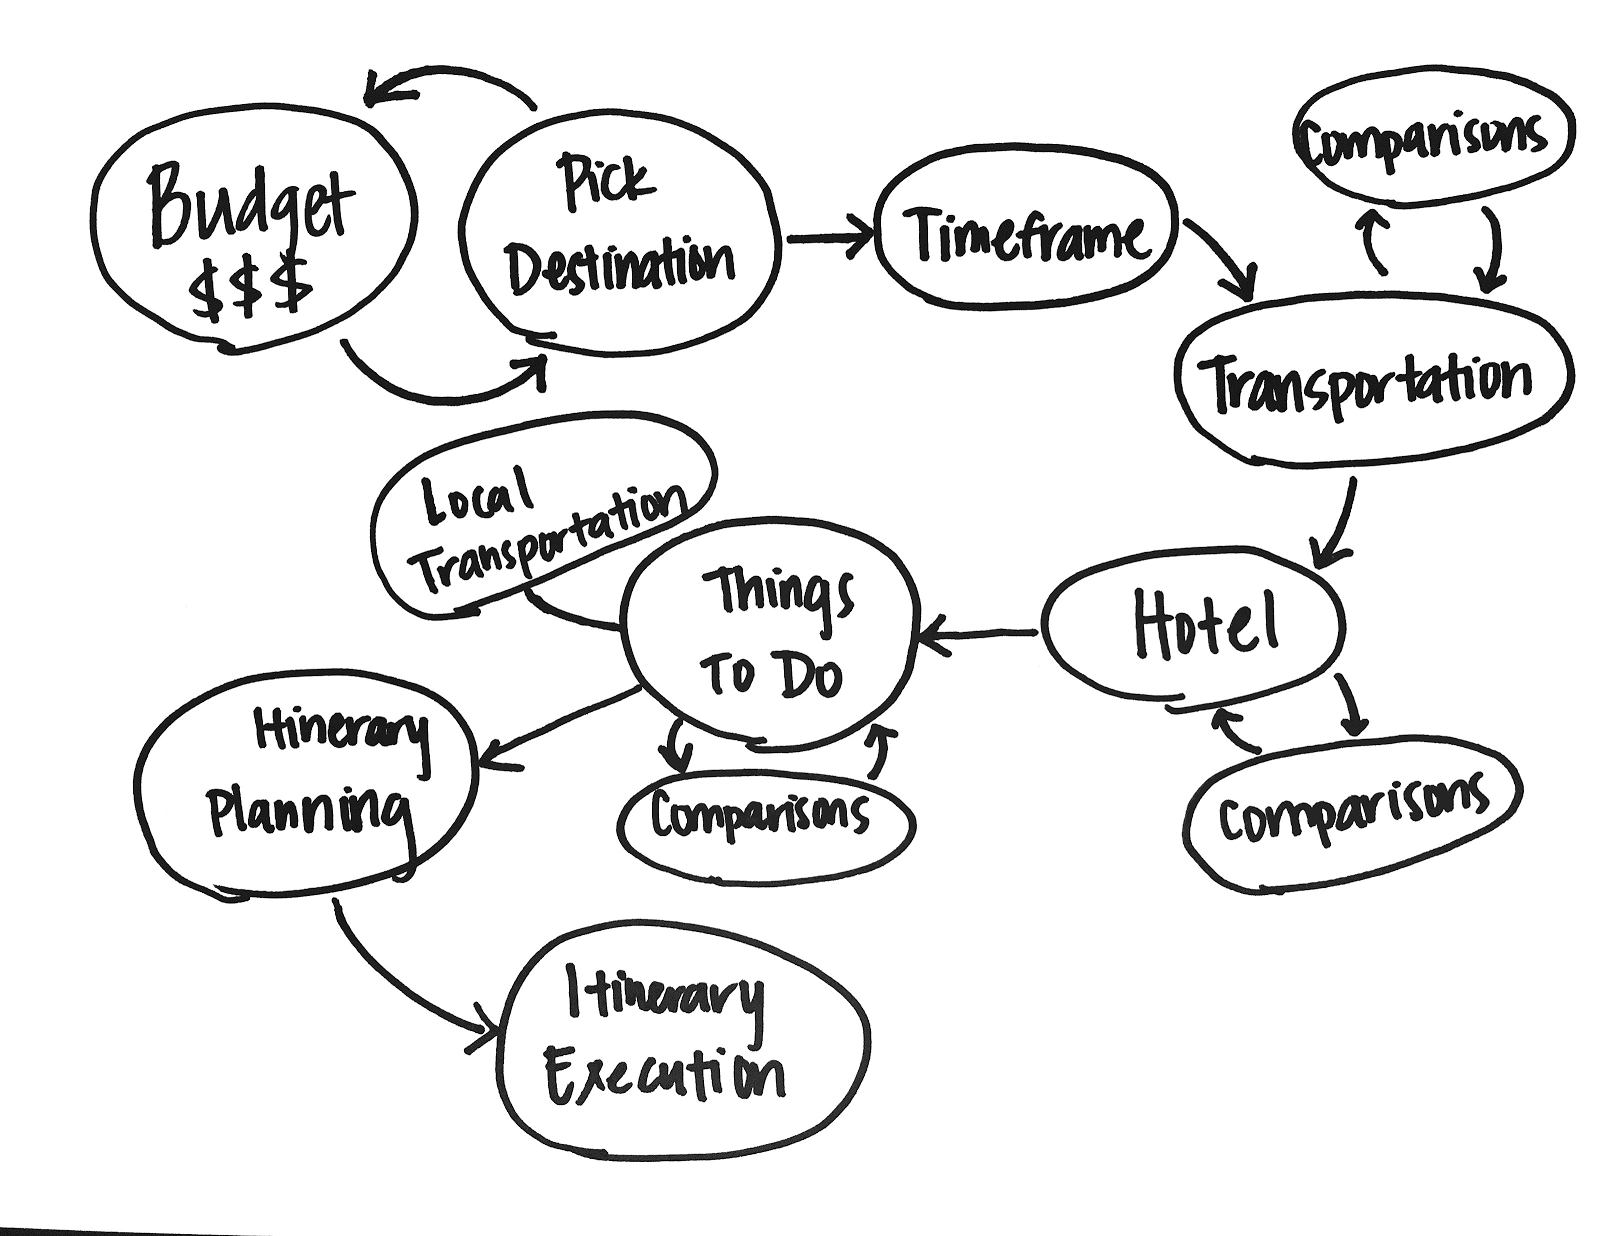 Budget
$$$
Pick
Destination
Timeframe
Comparisons
Transportation
Hotel
Comparisons
Things
To Do
Comparisons
Local
Transportation
Itinerary
Planning
Itinerary
Execution